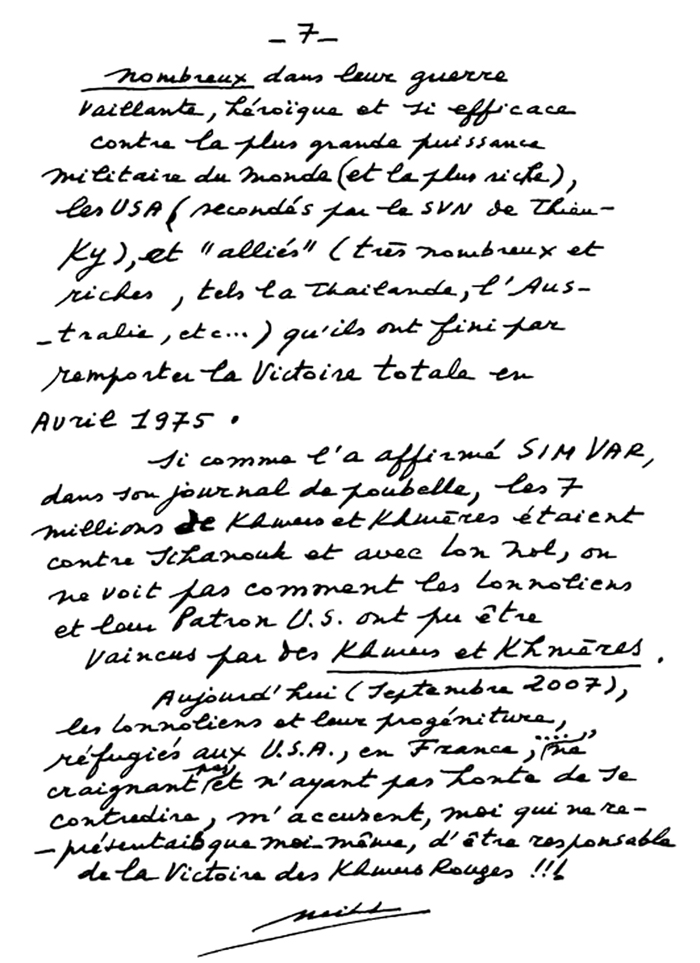 - 7 -
nombreux dans leur guerre
vaillante, héroïque et si efficace
contre la plus grande puissance
militaire du monde (et la plus riche),
les USA (secondés par le SVN de Thieu-
Ky), et "alliés" (très nombreux et
riches, tels la Thaïlande, l'Aus-
-tralie, etc...) qu'ils ont fini par
remporter la Victoire totale en
Avril 1975.
Si comme l'a affirmé SIM VAR,
dans son journal de poubelle, les 7
millions de Khmers et Khmères étaient
contre Sihanouk et avec Lon Nol, on
ne voit pas comment les lonnoliens
et leur Patron U.S. ont pu être
vaincus par des Khmers et Khmères.
Aujourd'hui (Septembre 2007),
les lonnoliens et leur progéniture,
réfugiés aux U.S.A., en France, ....., ne
craignant pas et n'ayant pas honte de se
contredire, m'accusent, moi qui ne re-
-présentais que moi-même, d'être responsable
de la Victoire des Khmers Rouges !!!